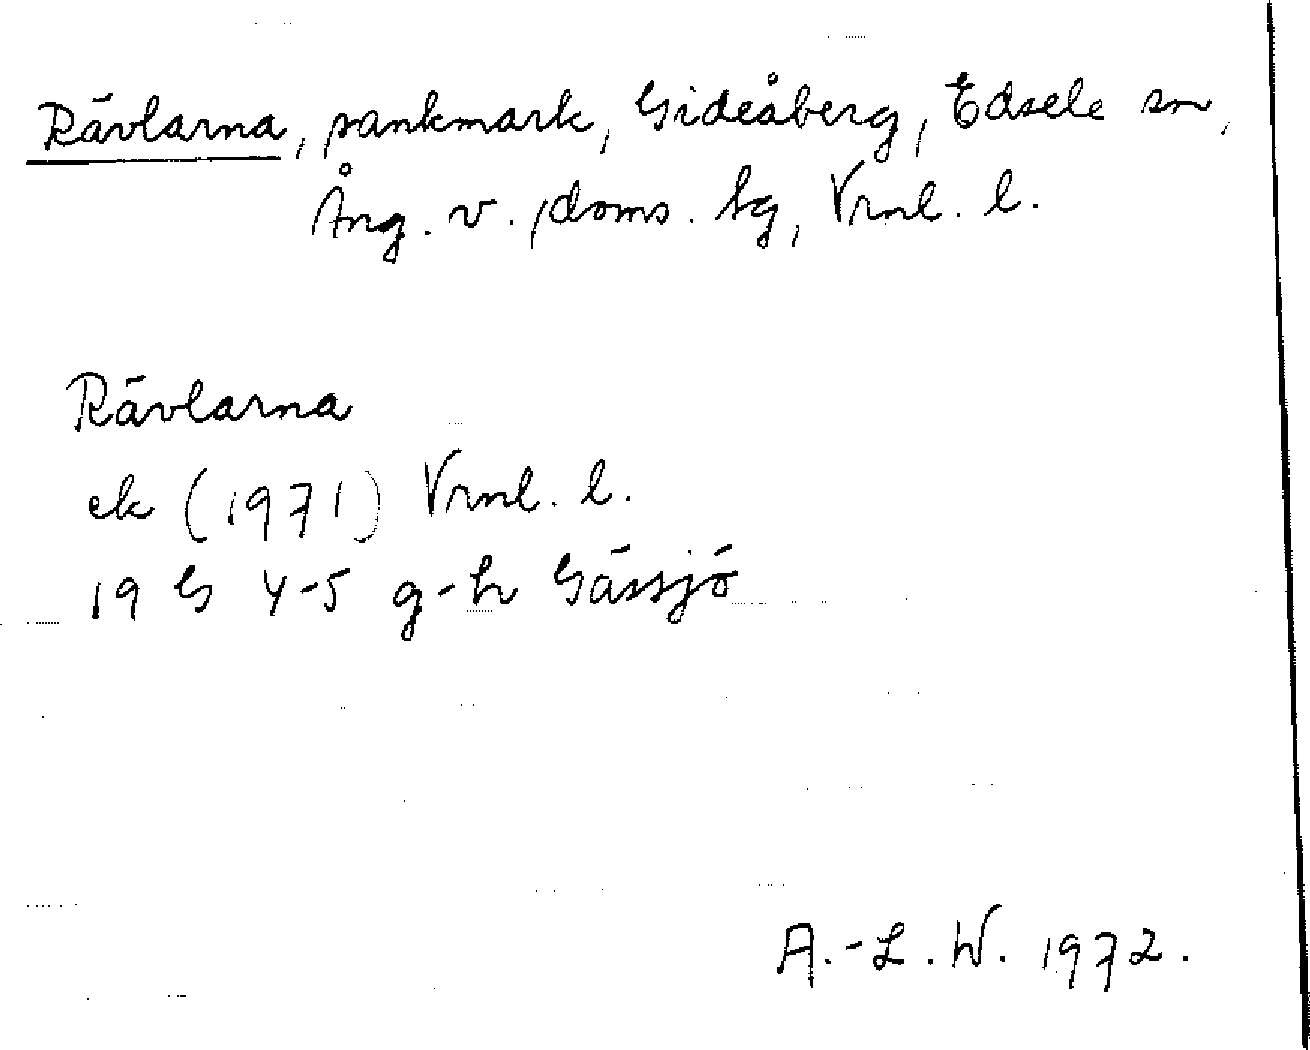 Rävlarna, sankmark, Gideåberg, Edsele sn,
Ång. v. doms. tg, Vrnl. l.
Rävlarna
ek (1971) Vrnl. l.
19 G 4-5 g-h Gässjö
A.-L. W. 1972.